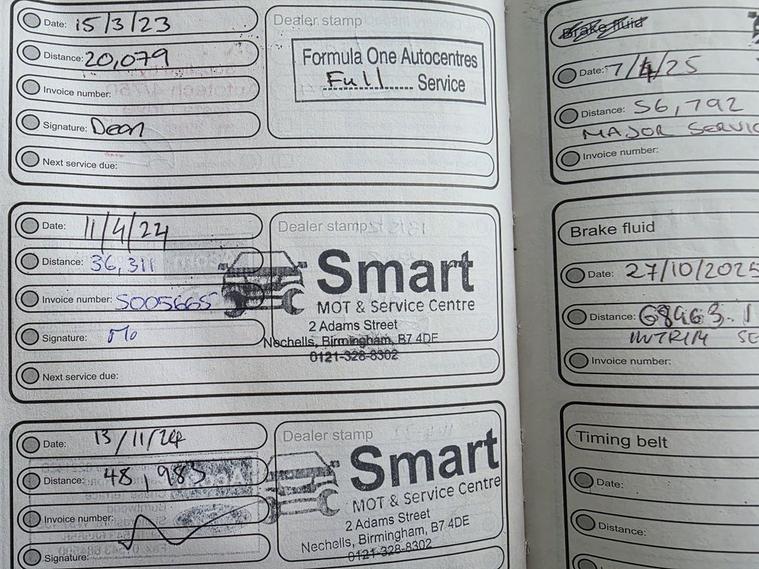 Date: 15/3/23
Distance: 20,079
Invoice number:
Signature: Dean
Next service due:
Dealer stamp
Formula One Autocentres
Full Service
Date: 11/4/24
Distance: 36,311
Invoice number: S005665
Signature: Mo
Next service due:
Dealer stamp
Smart
MOT & Service Centre
2 Adams Street
Nechells, Birmingham, B7 4DE
0121-328-8302
Date: 13/11/24
Distance: 48,983
Invoice number:
Signature:
Dealer stamp
Smart
MOT & Service Centre
2 Adams Street
Nechells, Birmingham, B7 4DE
0121-328-8302
Brake fluid
Date: 7/4/25
Distance: 56,792
MAJOR SERVIC
Invoice number:
Brake fluid
Date: 27/10/2025
Distance: 68963.
Invoice number:
Timing belt
Date:
Distance: